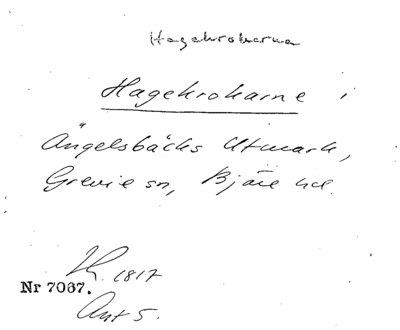 Hagekrokarna
Hagekrokarne i
Ängelsbäcks Utmark,
Grevie sn, Bjäre hd.
1817
Nr 7037.
Ant 5.